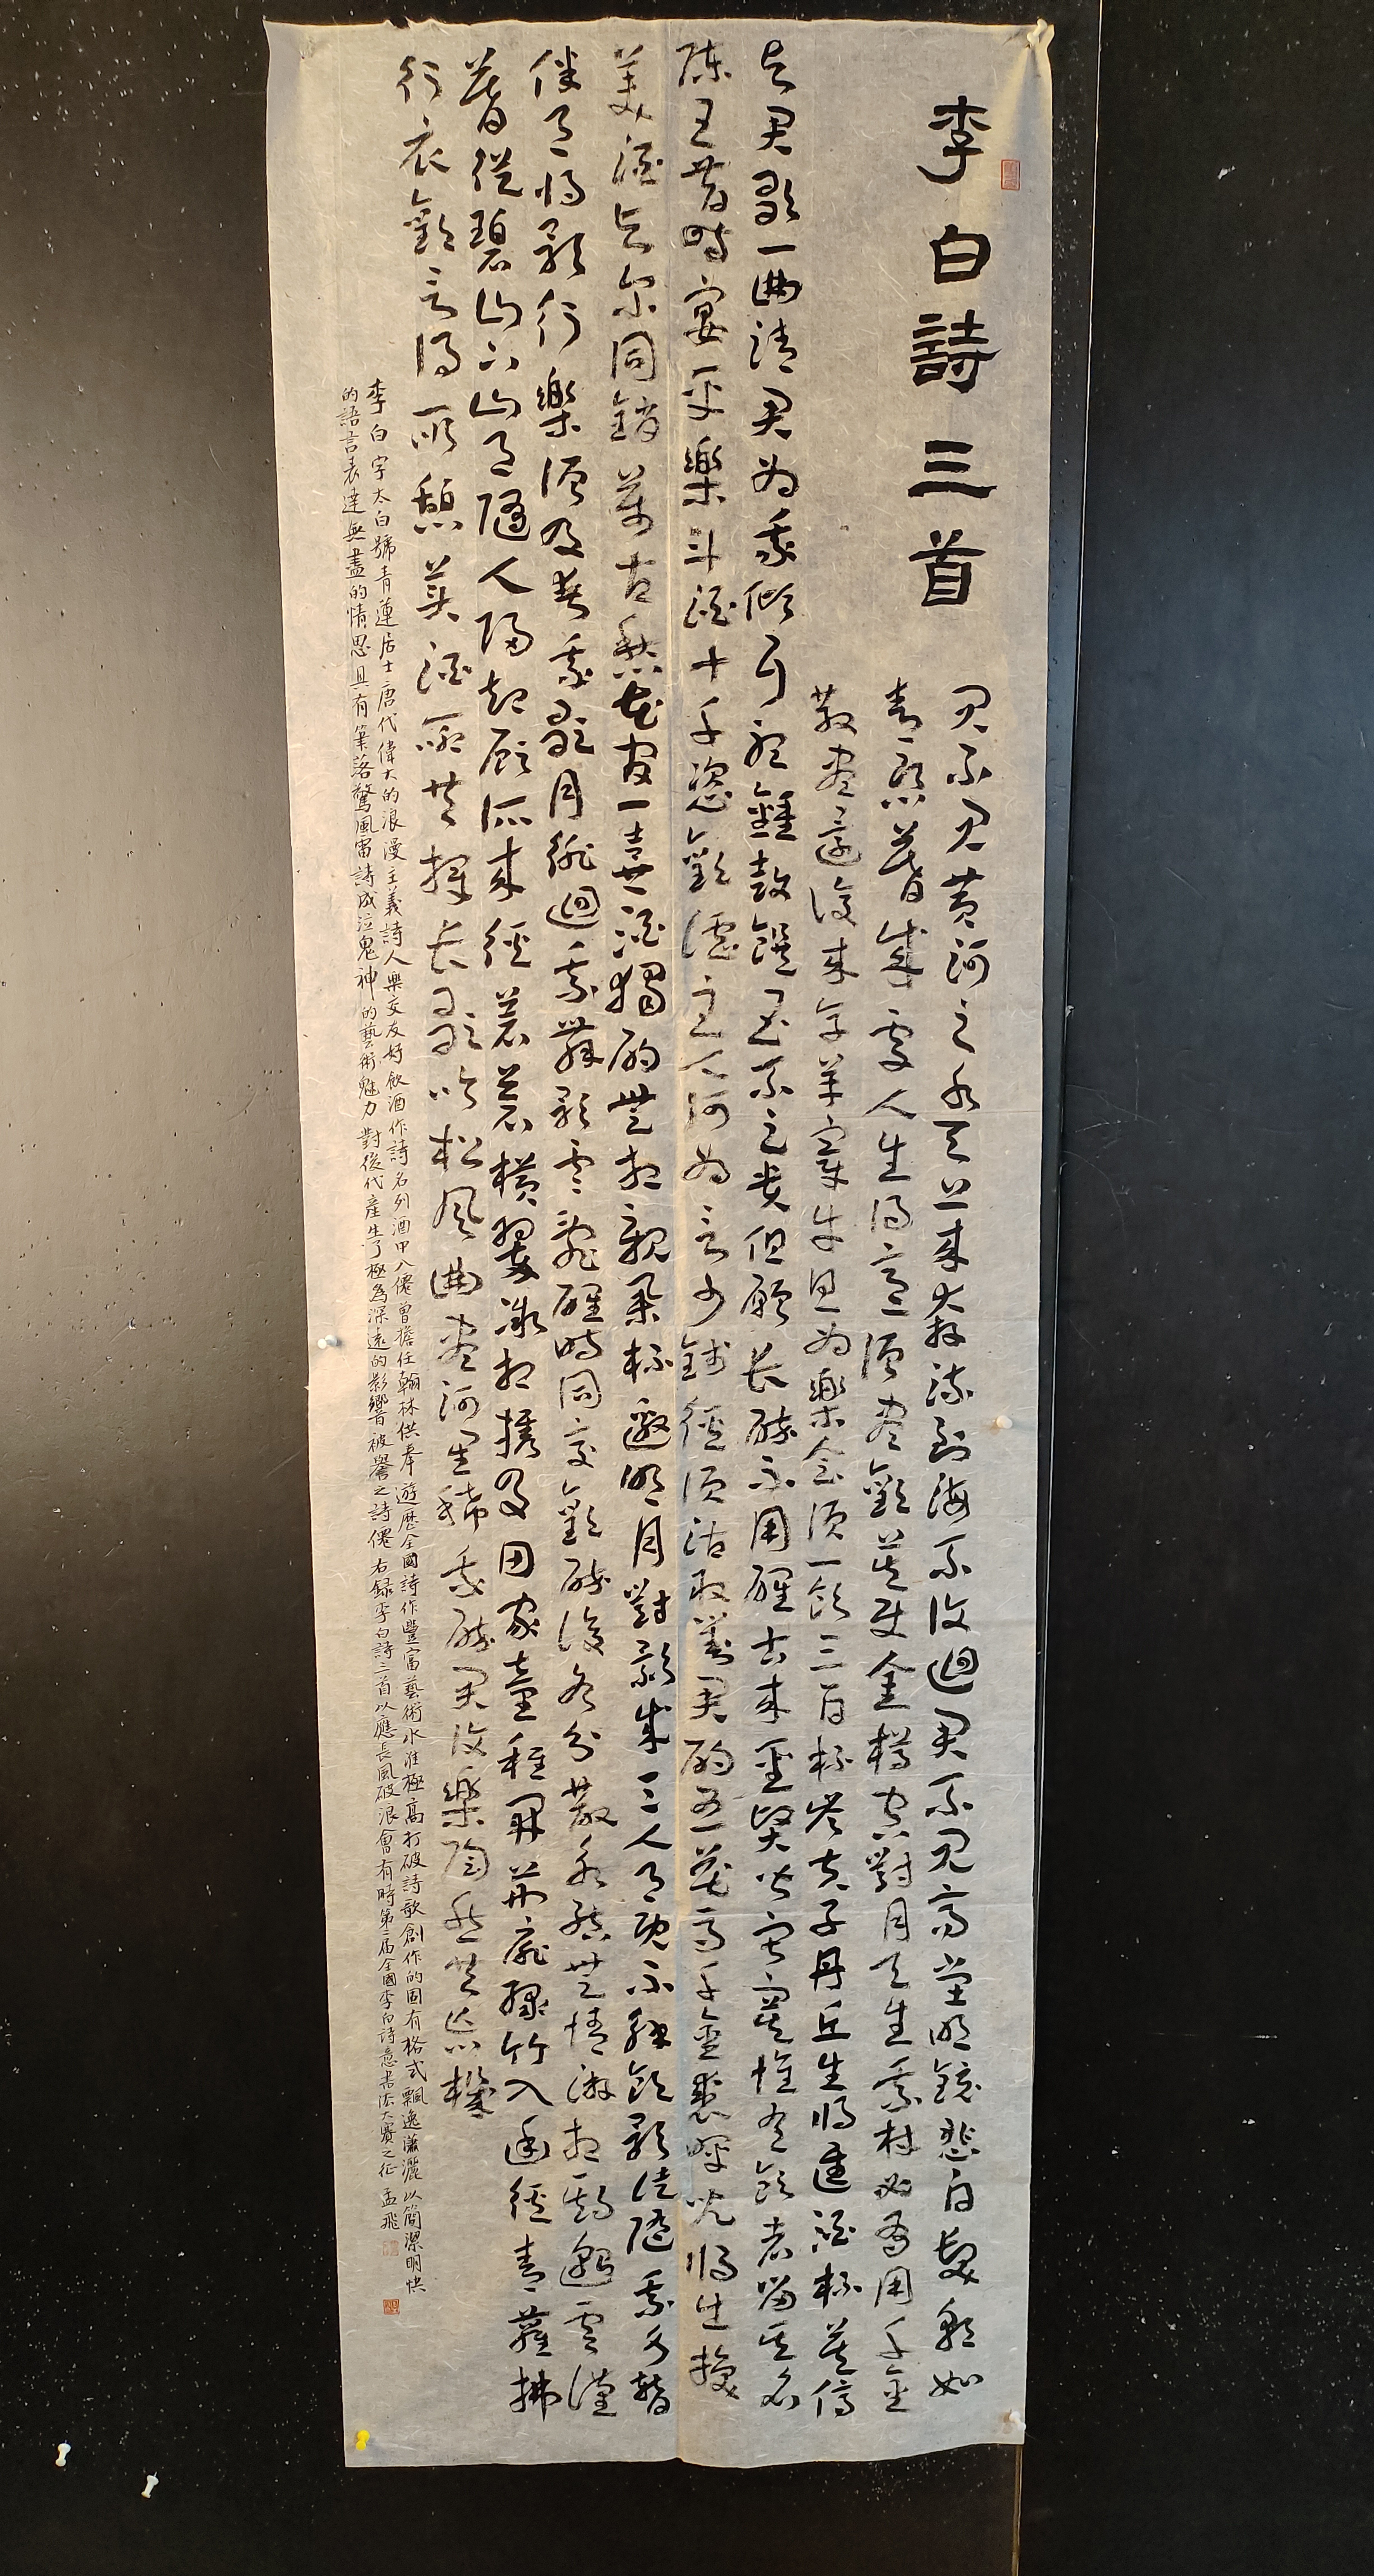 李白詩三首
君不見黃河之水天上來奔流到海不復迴君不見高堂明鏡悲白髮朝如
青絲暮成雪人生得意須盡歡莫使金樽空對月天生我材必有用千金
散盡還復來烹羊宰牛且為樂會須一飲三百杯岑夫子丹丘生將進酒杯莫停
與君歌一曲請君為我傾耳聽鐘鼓饌玉不足貴但願長醉不用醒古來聖賢皆寂寞惟有飲者留其名
陳王昔時宴平樂斗酒十千恣歡謔主人何為言少錢徑須沽取對君酌五花馬千金裘呼兒將出換
美酒與爾同銷萬古愁花間一壺酒獨酌無相親舉杯邀明月對影成三人月既不解飲影徒隨我身暫
伴月將影行樂須及春我歌月徘迴我舞影零亂醒時同交歡醉後各分散永結無情遊相期邈雲漢
暮從碧山下山月隨人歸卻顧所來徑蒼蒼橫翠微相攜及田家童稚開荊扉綠竹入幽徑青蘿拂
行衣歡言得所憩美酒聊共揮長歌吟松風曲盡河星稀我醉君復樂陶然共忘機
李白字太白號青蓮居士唐代偉大的浪漫主義詩人樂交友好飲酒作詩名列酒中八僊曾擔任翰林供奉遊歷全國詩作豐富藝術水准極高打破詩歌創作的固有格式飄逸瀟灑以簡潔明快
的語言表達無盡的情思具有筆落驚風雷詩成泣鬼神的藝術魅力對後代產生了極為深遠的影響被譽之詩僊右錄李白詩三首以應長風破浪會有時第二屆全國李白詩意書法大賽之征孟飛